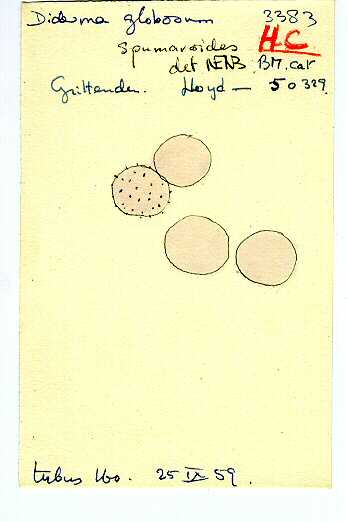 Diderma globosum 3383
spumarioides H.C
det NENB. BM. cat
Grittenden. Lloyd — 50329.
tubus 160. 25 IX 59.